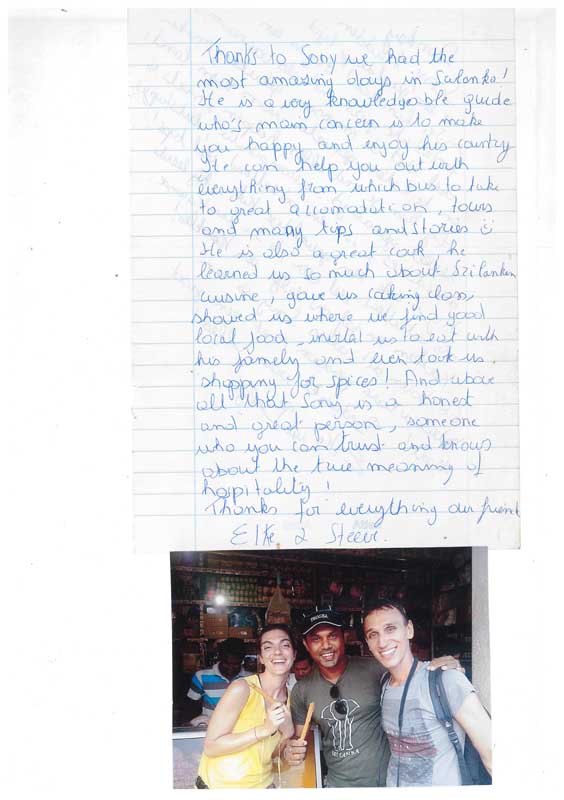 Thanks to Sony we had the
most amazing days in Sri Lanka!
He is a very knowledgeable guide
who's main concern is to make
you happy and enjoy his country
He can help you out with
everything from which bus to take
to great accomodation, tours
and many tips and stories
He is also a great cook he
learned us so much about Sri Lankan
cuisine, gave us cooking class,
showed us where we find good
local food, invited us to eat with
his family and even took us
shopping for spices! And above
all that Sony is a honest
and great person, someone
who you can trust and knows
about the true meaning of
hospitality!
Thanks for everything our friend
Elke & Steeve.
SRI LANKA